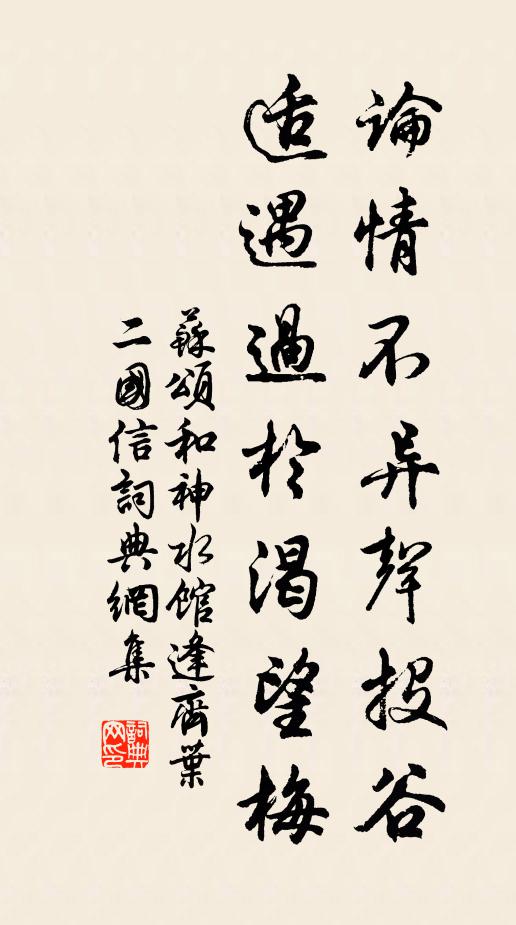 論情不异聲投谷
适遇過於渴望梅
蘇頌和神水館逢齊葉
二國信詞典網集
詞典網印